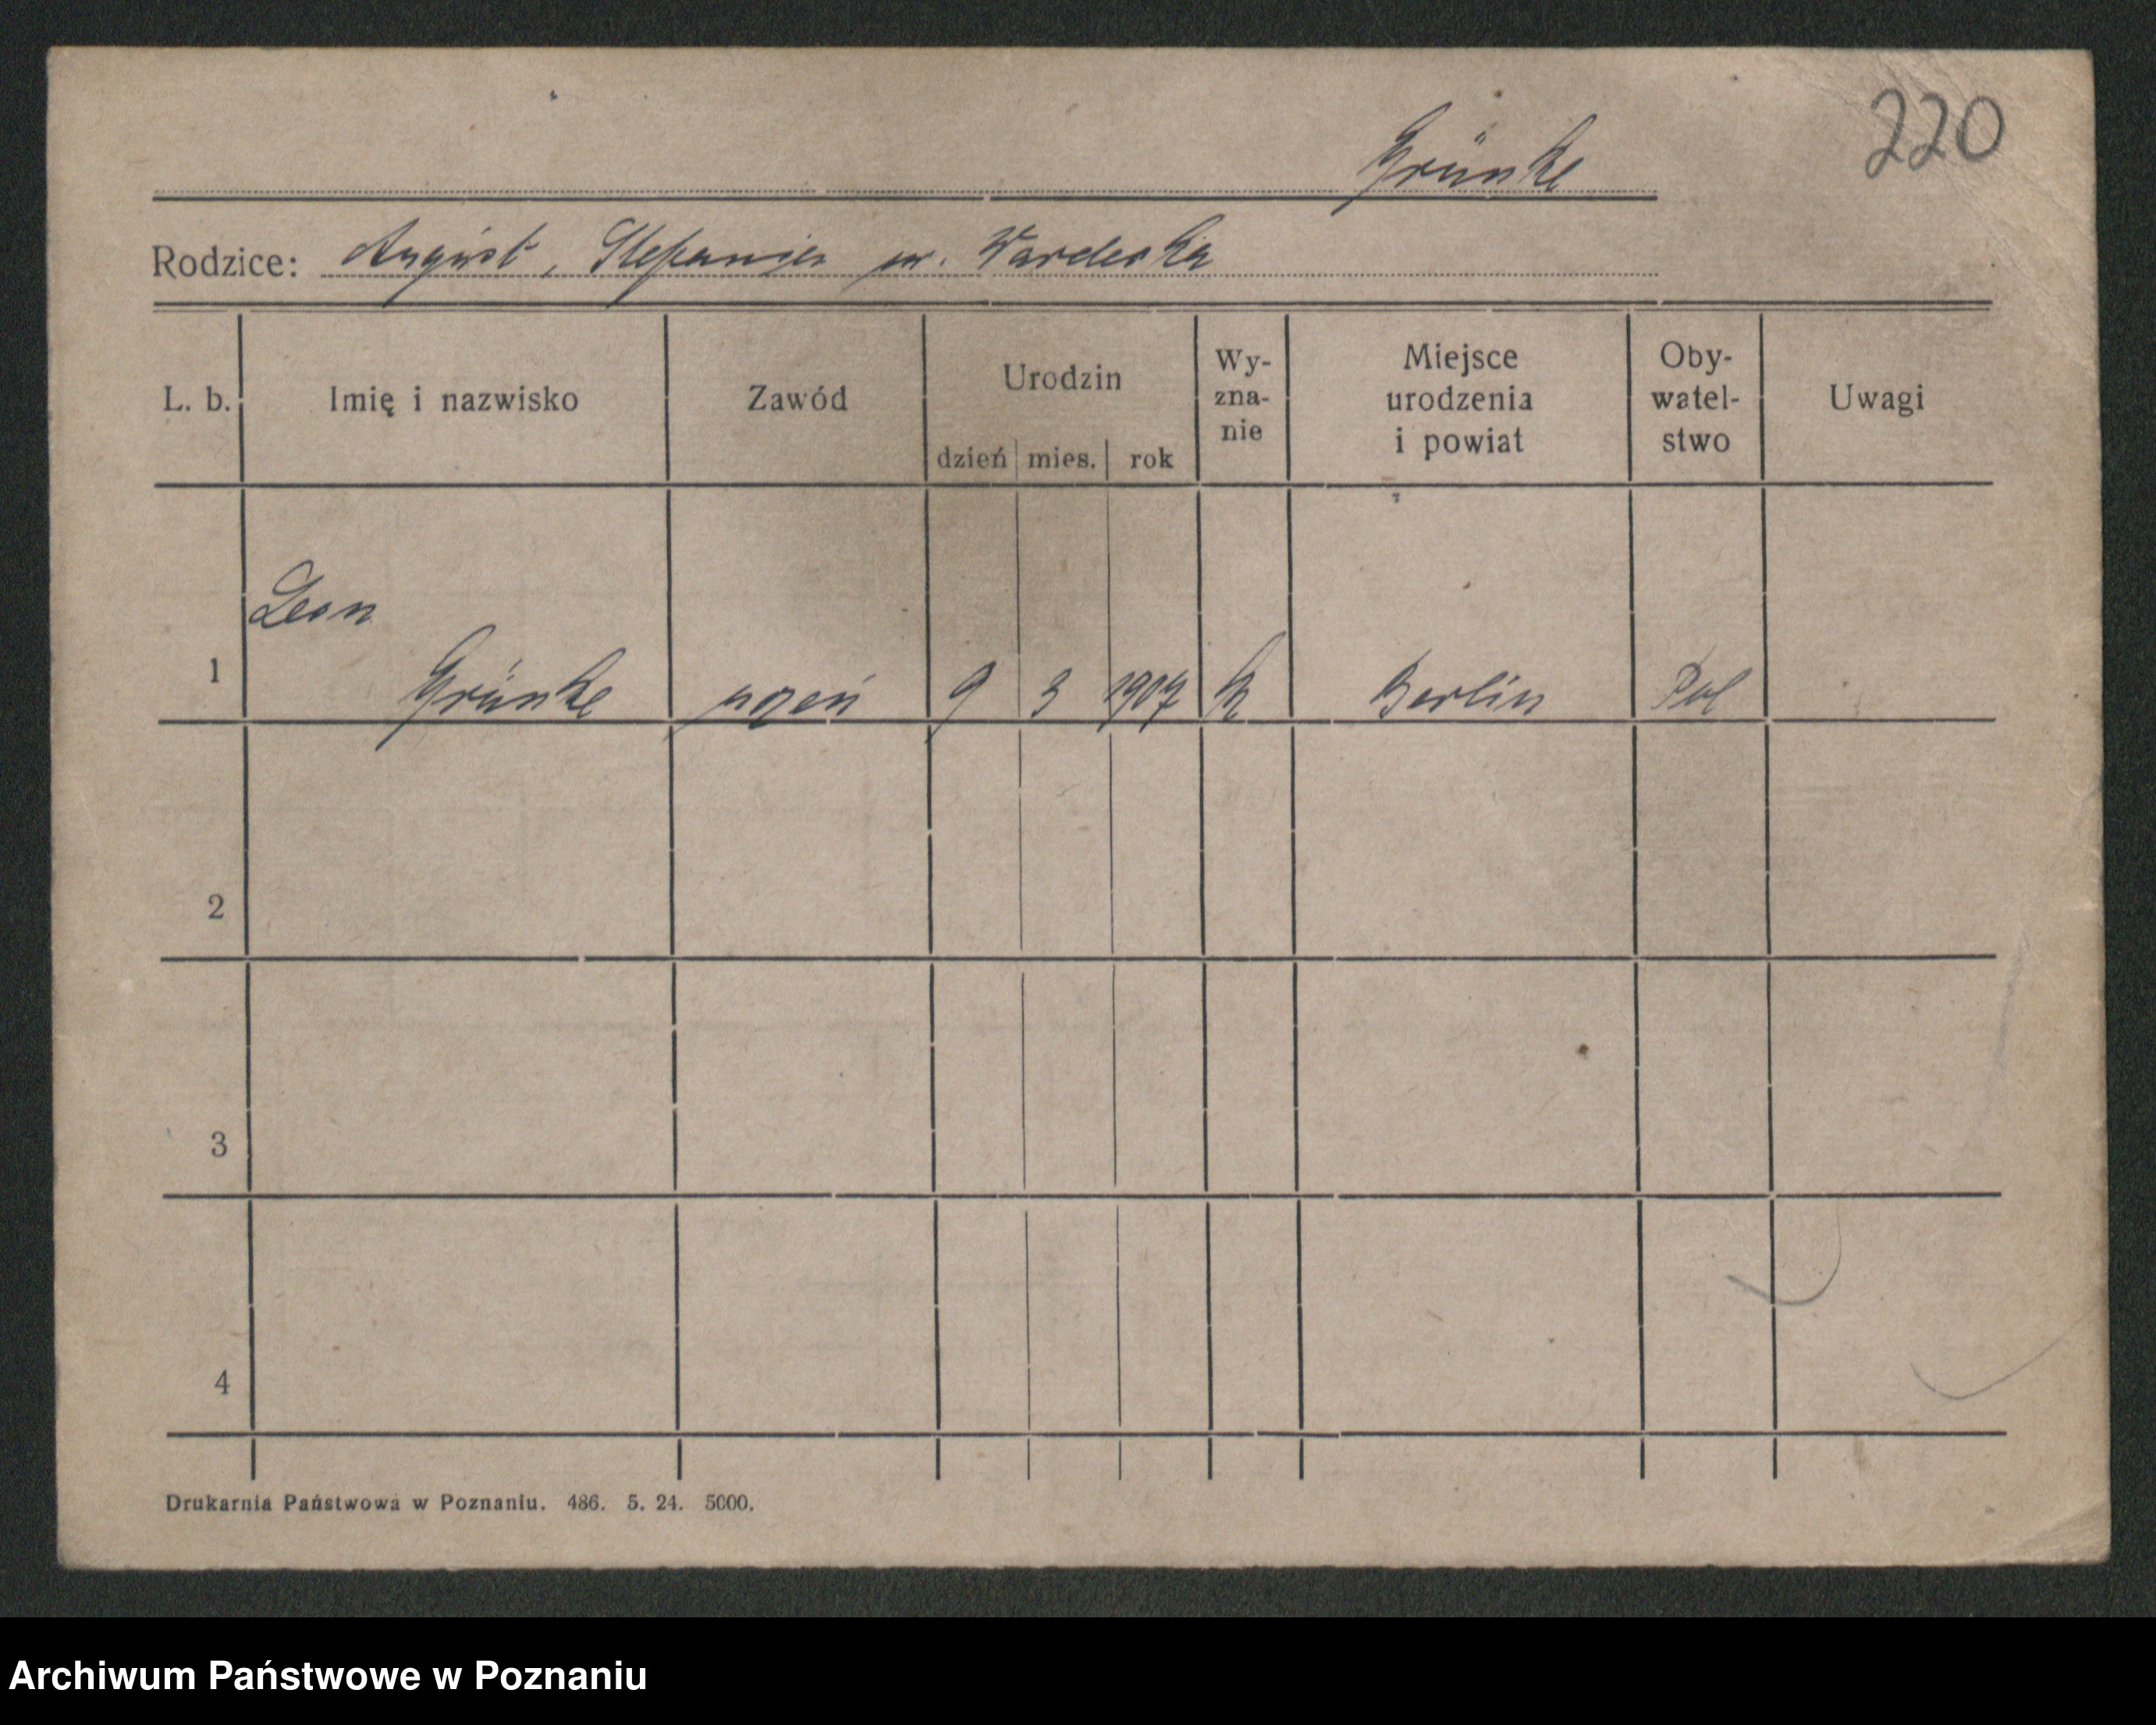 220
Grünke
Rodzice: August, Stefania ur. Wardeska
L. b. Imię i nazwisko Zawód Urodzin dzień mies. rok Wy-zna-nie Miejsce urodzenia i powiat Oby-watel-stwo Uwagi
Leon
1 Grünke uczeń 9 3 1907 k Berlin Pol
2
3
4
Drukarnia Państwowa w Poznaniu. 486. 5. 24. 5000.
Archiwum Państwowe w Poznaniu